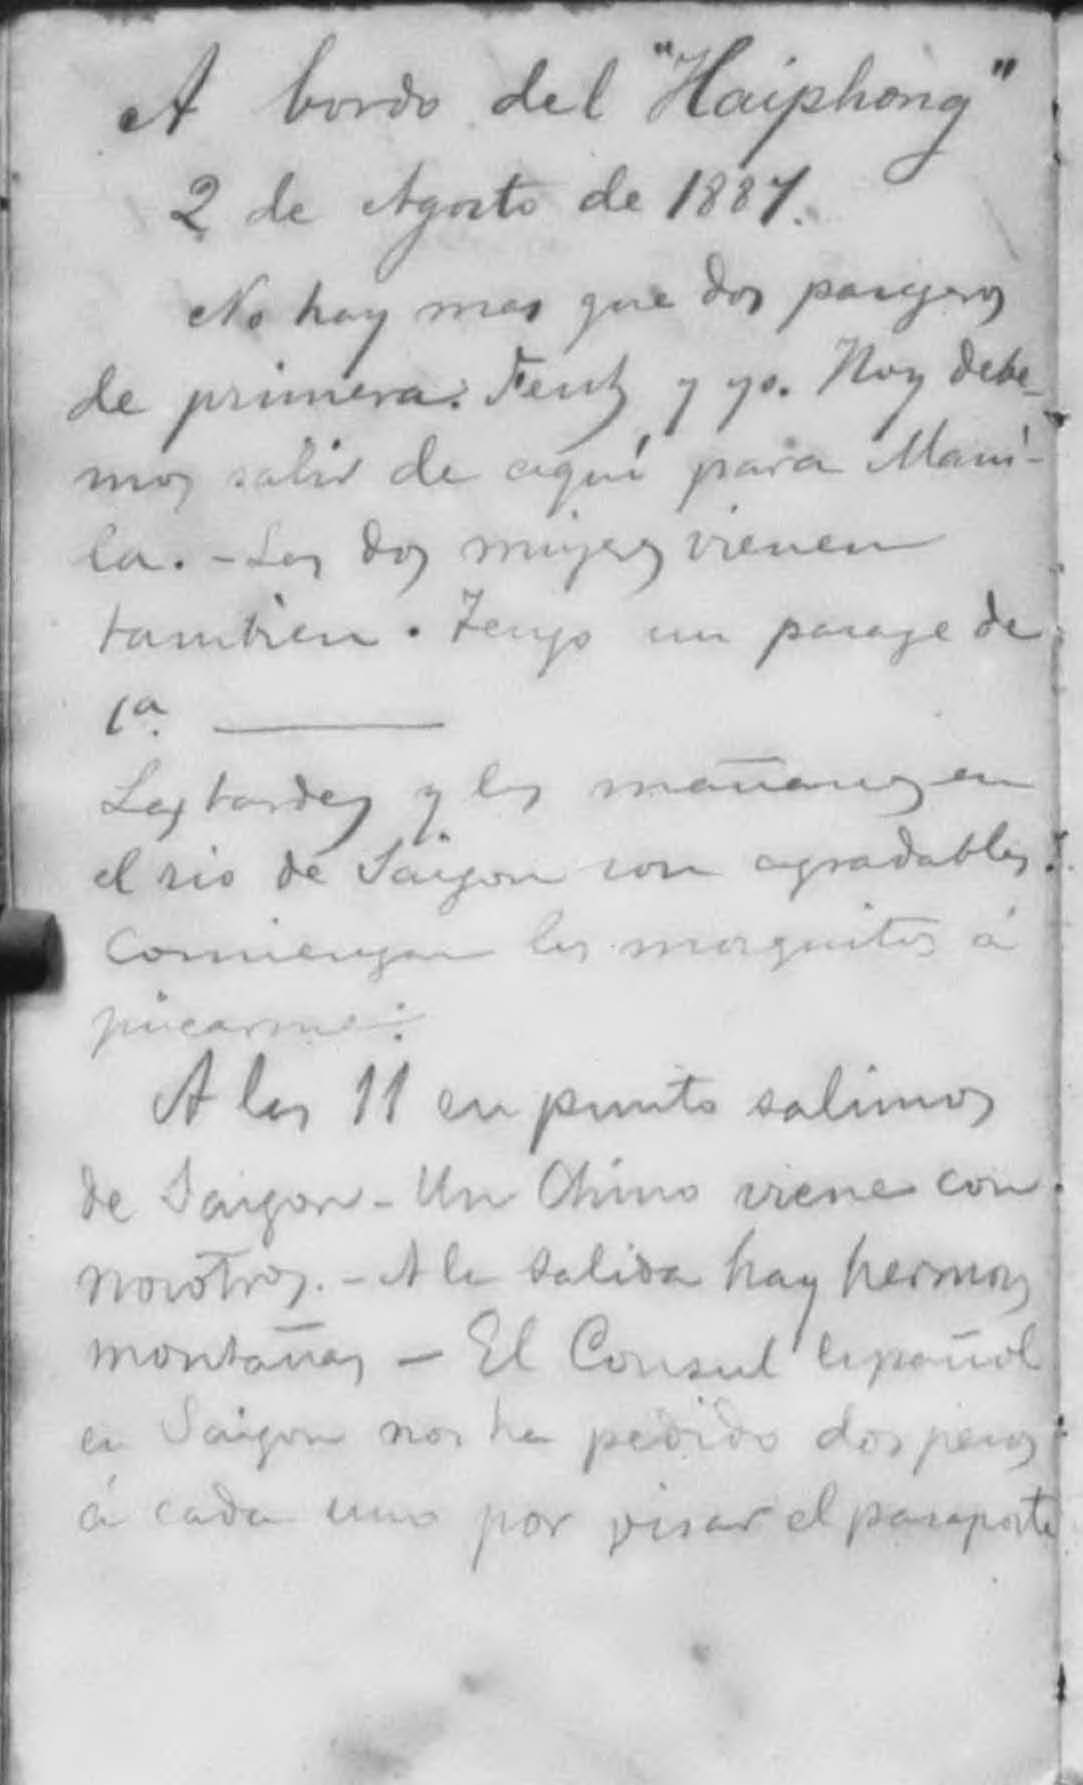 A bordo del "Haiphong"
2 de Agosto de 1887.
No hay mas que dos pasageros
de primera: y yo. Hoy debe-
mos salir de aquí para Mani-
la. - Las dos mujeres vienen
tambien. Tengo un pasage de
1a.
Las tardes y las mañanas en
el rio de Saigon son agradables.
Comienzan los mosquitos á
picarme.
A las 11 en punto salimos
de Saigon - Un Chino viene con
nosotros. - A la salida hay hermosas
montañas - El Consul español
en Saigon nos ha pedido dos pesos
á cada uno por visar el pasaporte